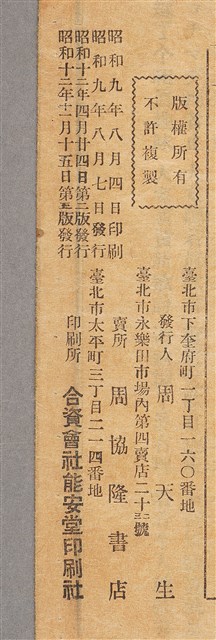 版權所有
不許複製
昭和九年八月四日印刷
昭和九年八月七日發行
昭和十二年四月廿四日第二版發行
昭和十二年十二月十五日第五版發行
臺北市下奎府町一丁目一六〇番地
發行人 周天生
臺北市永樂町市場內第四賣店二十五號
賣所 周協隆書店
臺北市太平町三丁目二一四番地
印刷所 合資會社能安堂印刷社